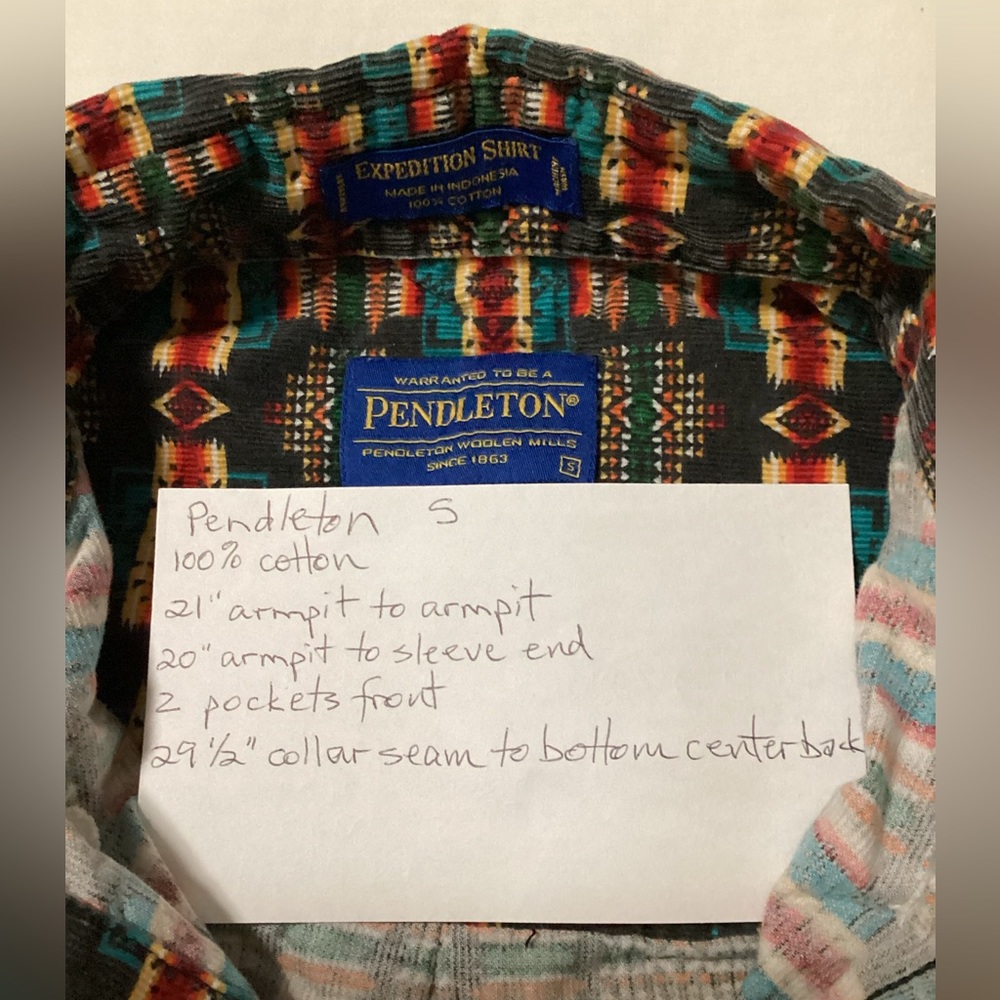 EXPEDITION SHIRT
MADE IN INDONESIA
100% COTTON
WARRANTED TO BE A
PENDLETON®
PENDLETON WOOLEN MILLS
SINCE 1863
S
Pendleton S
100% cotton
21" armpit to armpit
20" armpit to sleeve end
2 pockets front
29 1/2" collar seam to bottom center back